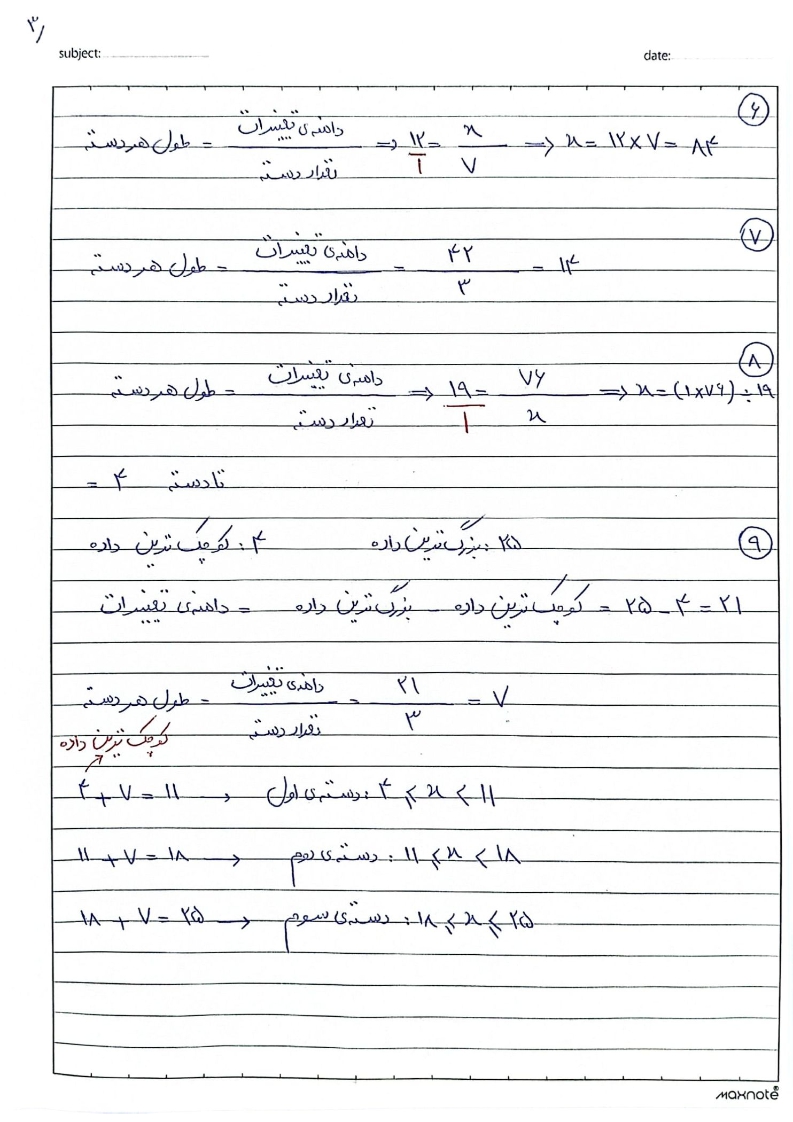 ۳/
subject: date:
۶
طول هر دسته = دامنه‌ی تغییرات / تعداد دسته ⇒ ۱۲/۱ = x/۷ ⇒ x = ۱۲ × ۷ = ۸۴
۷
طول هر دسته = دامنه‌ی تغییرات / تعداد دسته = ۴۲/۳ = ۱۴
۸
طول هر دسته = دامنه‌ی تغییرات / تعداد دسته ⇒ ۱۹/۱ = ۷۶/x ⇒ x = (۱×۷۶) ÷ ۱۹
= ۴ تا دسته
۹
۲۵ : بزرگ ترین داده ۴ : کوچک ترین داده
دامنه‌ی تغییرات = بزرگ ترین داده - کوچک ترین داده = ۲۵ - ۴ = ۲۱
طول هر دسته = دامنه‌ی تغییرات / تعداد دسته = ۲۱/۳ = ۷
کوچک ترین داده
۴ + ۷ = ۱۱ → دسته‌ی اول : ۴ ⩽ x < ۱۱
۱۱ + ۷ = ۱۸ → دسته‌ی دوم : ۱۱ ⩽ x < ۱۸
۱۸ + ۷ = ۲۵ → دسته‌ی سوم : ۱۸ ⩽ x ⩽ ۲۵
maxnote